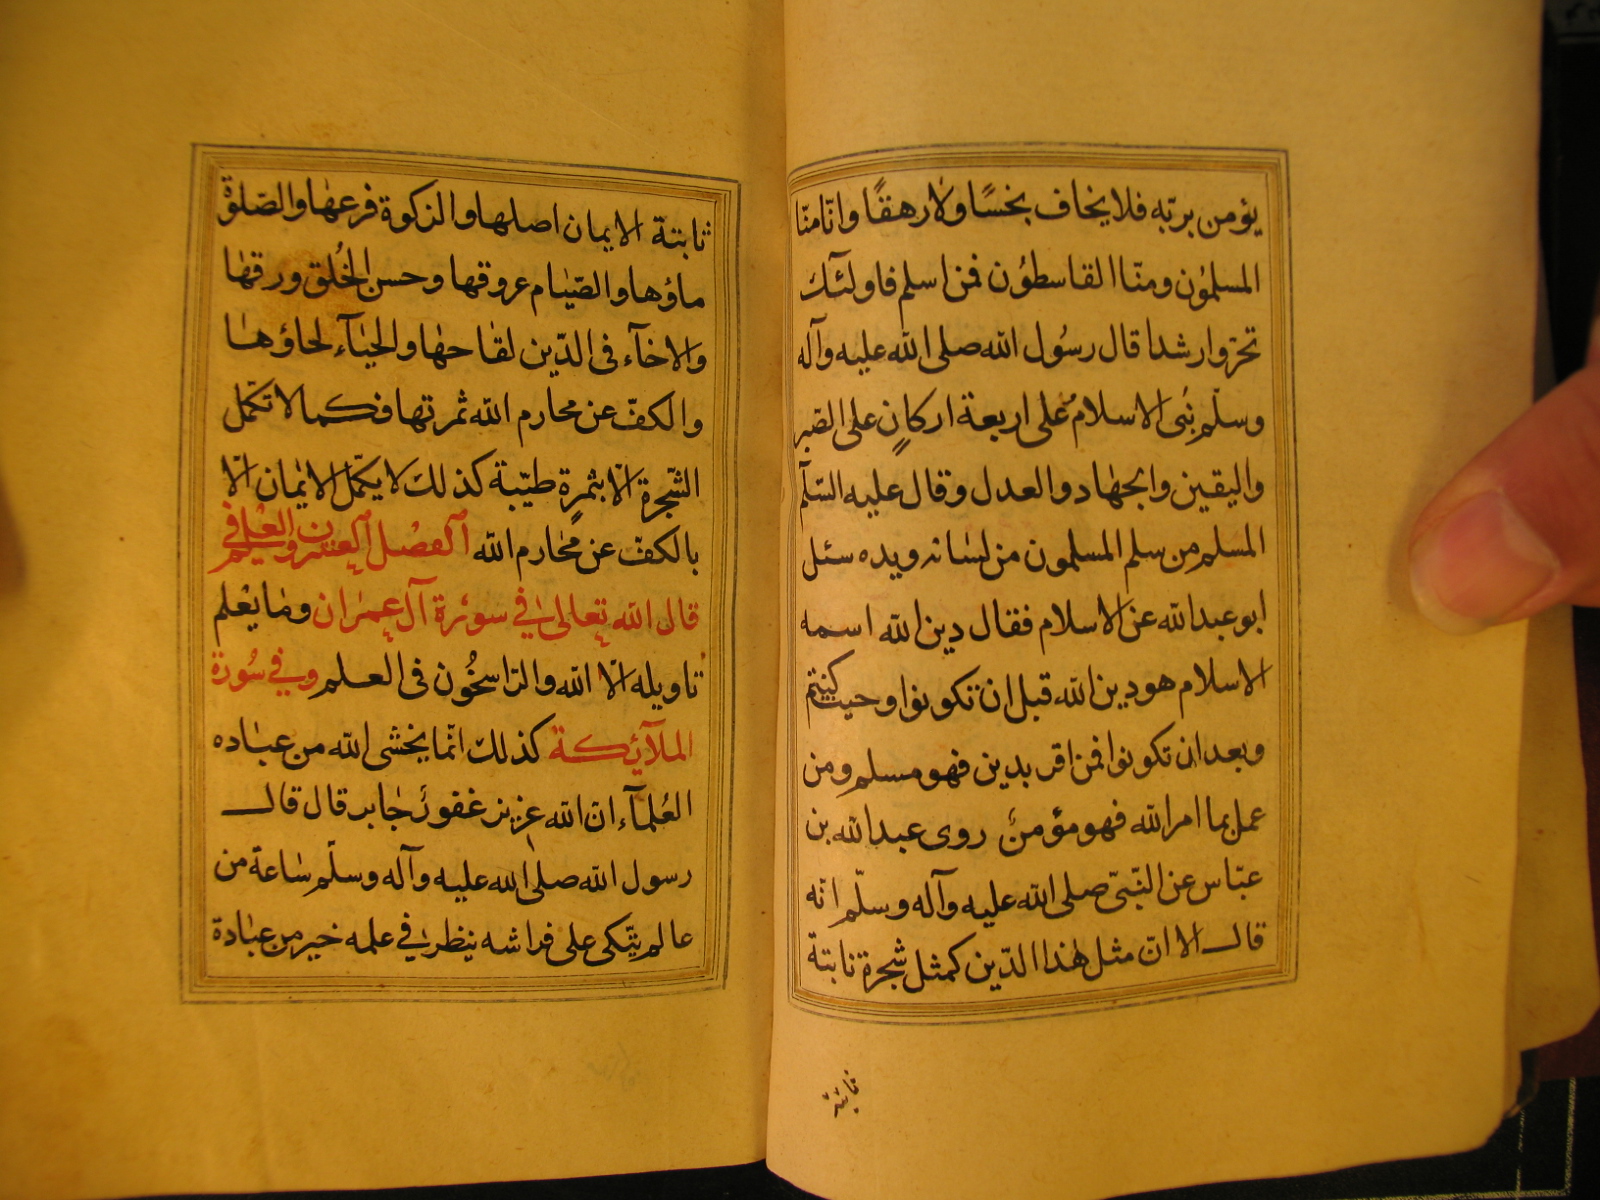 يؤمن بربّه فلا يخاف بخسًا ولا رهقًا وانّا منّا
المسلمون ومنّا القاسطون فمن اسلم فاولئك
تحرّوا رشدا قال رسول الله صلى الله عليه وآله
وسلّم بُنى الاسلامُ على اربعة اركانٍ على الصّبر
واليقين والجهاد والعدل وقال عليه السّلم
المسلم من سلم المسلمون من لسانه ويده سئل
ابو عبدالله عن الاسلام فقال دين الله اسمه
الاسلام هو دين الله قبل ان تكونوا وحيث كنتم
وبعد ان تكونوا فمن اقر بدين فهو مسلم ومن
عمل بما امر الله فهو مؤمنٌ روى عبد الله بن
عبّاس عن النّبىّ صلى الله عليه وآله وسلّم انّه
قال الا انّ مثل هٰذا الدّين كمثل شجرة نابتة
ثابتة
ثابتة الايمان اصلها والزكوة فرعها والصّلوٰة
ماؤها والصّيام عروقها وحسن الخُلق ورقها
والاخآء فى الدّين لقاحها والحيآء لحاؤها
والكفّ عن محارم الله ثمرتها فكما لا تكمّل
الشّجرة الّا بثمرةٍ طيّبة كذلك لا يكمّل الايمان الّا
بالكفّ عن محارم الله الفصل العشرون فى العلم
قال الله تعالى فى سورة آل عمران وما يعلم
تاويله الّا الله والرّاسخُون فى العلم وفى سُورة
الملآئكة كذلك انّما يخشى الله من عباده
العُلمآء ان الله عزيز غفورٌ جابر قال قال
رسول الله صلى الله عليه وآله وسلّم ساعة من
عالم يتّكى على فراشه ينظر فى علمه خير من عبادة